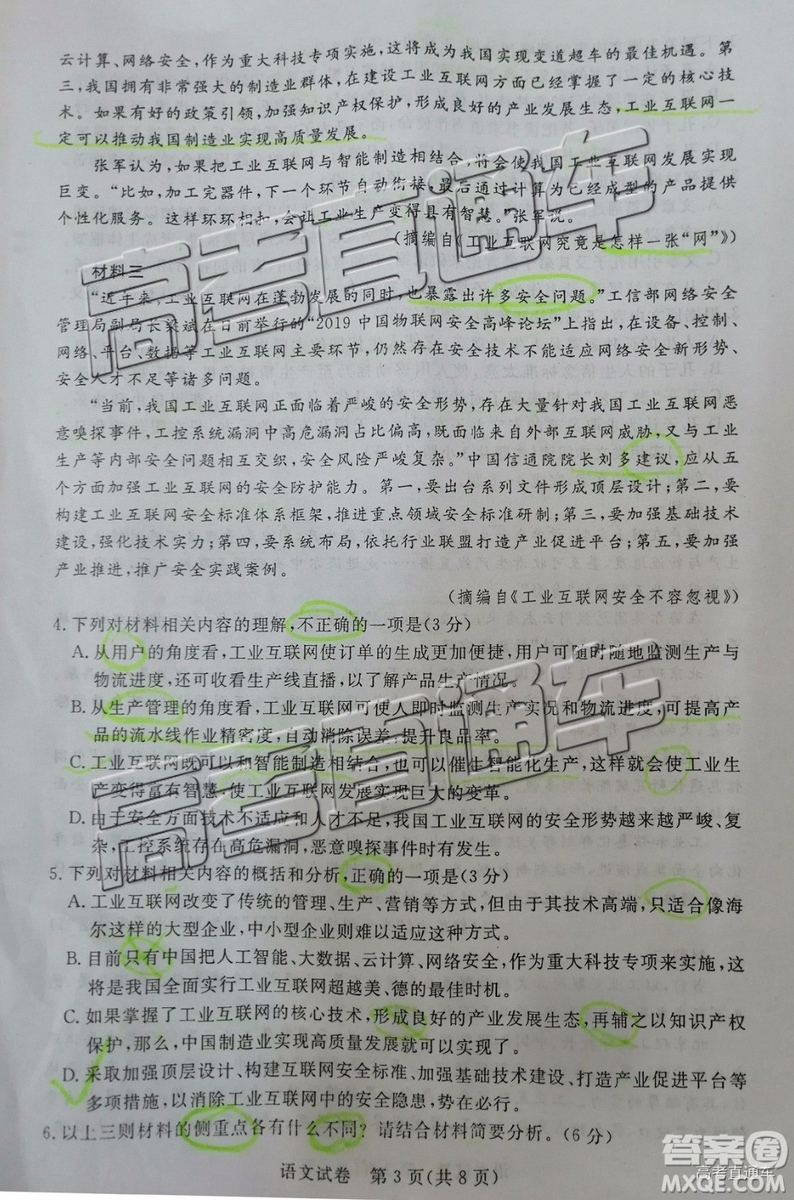 云计算、网络安全，作为重大科技专项实施，这将成为我国实现变道超车的最佳机遇。第
三，我国拥有非常强大的制造业群体，在建设工业互联网方面已经掌握了一定的核心技
术。如果有好的政策引领，加强知识产权保护，形成良好的产业发展生态，工业互联网一
定可以推动我国制造业实现高质量发展。
张军认为，如果把工业互联网与智能制造相结合，将会使我国工业互联网发展实现
巨变。“比如，加工完器件，下一个环节自动衔接，最后通过计算为已经成型的产品提供
个性化服务。这样环环相扣，会让工业生产变得具有智慧。”张军说。
(摘编自《工业互联网究竟是怎样一张“网”》)
材料三
“近年来，工业互联网在蓬勃发展的同时，也暴露出许多安全问题。”工信部网络安全
管理局副局长梁斌在日前举行的“2019中国物联网安全高峰论坛”上指出，在设备、控制、
网络、平台、数据等工业互联网主要环节，仍然存在安全技术不能适应网络安全新形势、
安全人才不足等诸多问题。
“当前，我国工业互联网正面临着严峻的安全形势，存在大量针对我国工业互联网恶
意嗅探事件，工控系统漏洞中高危漏洞占比偏高，既面临来自外部互联网威胁，又与工业
生产等内部安全问题相互交织，安全风险严峻复杂。”中国信通院院长刘多建议，应从五
个方面加强工业互联网的安全防护能力。第一，要出台系列文件形成顶层设计；第二，要
构建工业互联网安全标准体系框架，推进重点领域安全标准研制；第三，要加强基础技术
建设，强化技术实力；第四，要系统布局，依托行业联盟打造产业促进平台；第五，要加强
产业推进，推广安全实践案例。
(摘编自《工业互联网安全不容忽视》)
4.下列对材料相关内容的理解，不正确的一项是(3分)
A.从用户的角度看，工业互联网使订单的生成更加便捷，用户可随时随地监测生产与
物流进度，还可收看生产线直播，以了解产品生产情况。
B.从生产管理的角度看，工业互联网可使人即时监测生产实况和物流进度，可提高产
品的流水线作业精密度，自动消除误差，提升良品率。
C.工业互联网既可以和智能制造相结合，也可以催生智能化生产，这样就会使工业生
产变得富有智慧，使工业互联网发展实现巨大的变革。
D.由于安全方面技术不适应和人才不足，我国工业互联网的安全形势越来越严峻、复
杂，工控系统存在高危漏洞，恶意嗅探事件时有发生。
5.下列对材料相关内容的概括和分析，正确的一项是(3分)
A.工业互联网改变了传统的管理、生产、营销等方式，但由于其技术高端，只适合像海
尔这样的大型企业，中小型企业则难以适应这种方式。
B.目前只有中国把人工智能、大数据、云计算、网络安全，作为重大科技专项来实施，这
将是我国全面实行工业互联网超越美、德的最佳时机。
C.如果掌握了工业互联网的核心技术，形成良好的产业发展生态，再辅之以知识产权
保护，那么，中国制造业实现高质量发展就可以实现了。
D.采取加强顶层设计、构建互联网安全标准、加强基础技术建设、打造产业促进平台等
多项措施，以消除工业互联网中的安全隐患，势在必行。
6.以上三则材料的侧重点各有什么不同？请结合材料简要分析。(6分)
语文试卷 第3页(共8页)
高考直通车
高考直通车
答案卷
MXQE.COM
高考直通车